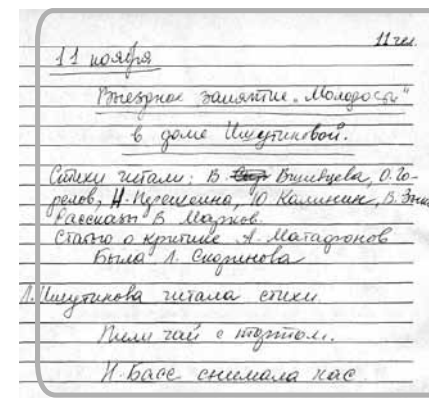 11 чел
11 ноября
Выездное занятие „Молодости"
в доме Ишутиновой.
Стихи читали: В. Вшивцева, О. Го-
релов, Н. Перешеина, Ю Калинин, В.
Рассказы В Марков.
Статью о критике А. Матафонов
Была Л. Скоринова
Л. Ишутинова читала стихи.
Пили чай с тортом.
И. Басс снимала нас.